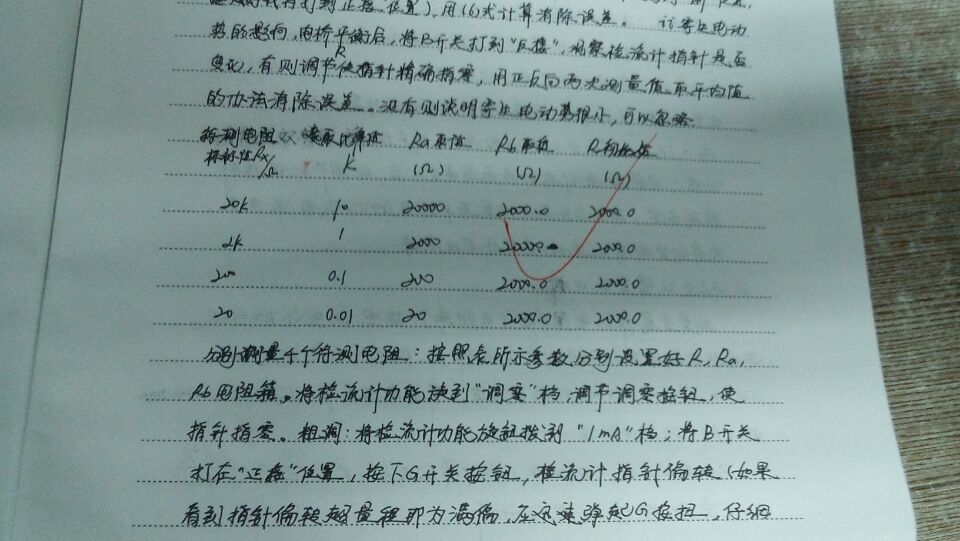 打到正接位置),用(6)式计算消除误差。 讨论热电动
势的影响,电桥平衡后,将B开关打到“反接”,观察检流计指针是否
变化,有则调节R使指针精确指零,用正反向两次测量值取平均值
的办法消除误差。没有则说明寄生电动势很小,可以忽略
待测电阻 选取比率值 Ra取值 Rb取值 R初始值
标称值Rx/Ω K (Ω) (Ω) (Ω)
20k 10 20000 2000.0 2000.0
2k 1 2000 2000.0 2000.0
200 0.1 200 2000.0 2000.0
20 0.01 20 2000.0 2000.0
分别测量4个待测电阻:按照表所示参数分别设置好R,Ra,
Rb电阻箱。将检流计功能旋到“调零”档,调节调零按钮,使
指针指零。粗调:将检流计功能旋钮拨到“1mA”档;将B开关
打在“正接”位置,按下G开关按钮,检流计指针偏转(如果
看到指针偏转超量程即为满偏,应迅速弹起G按扭,仔细